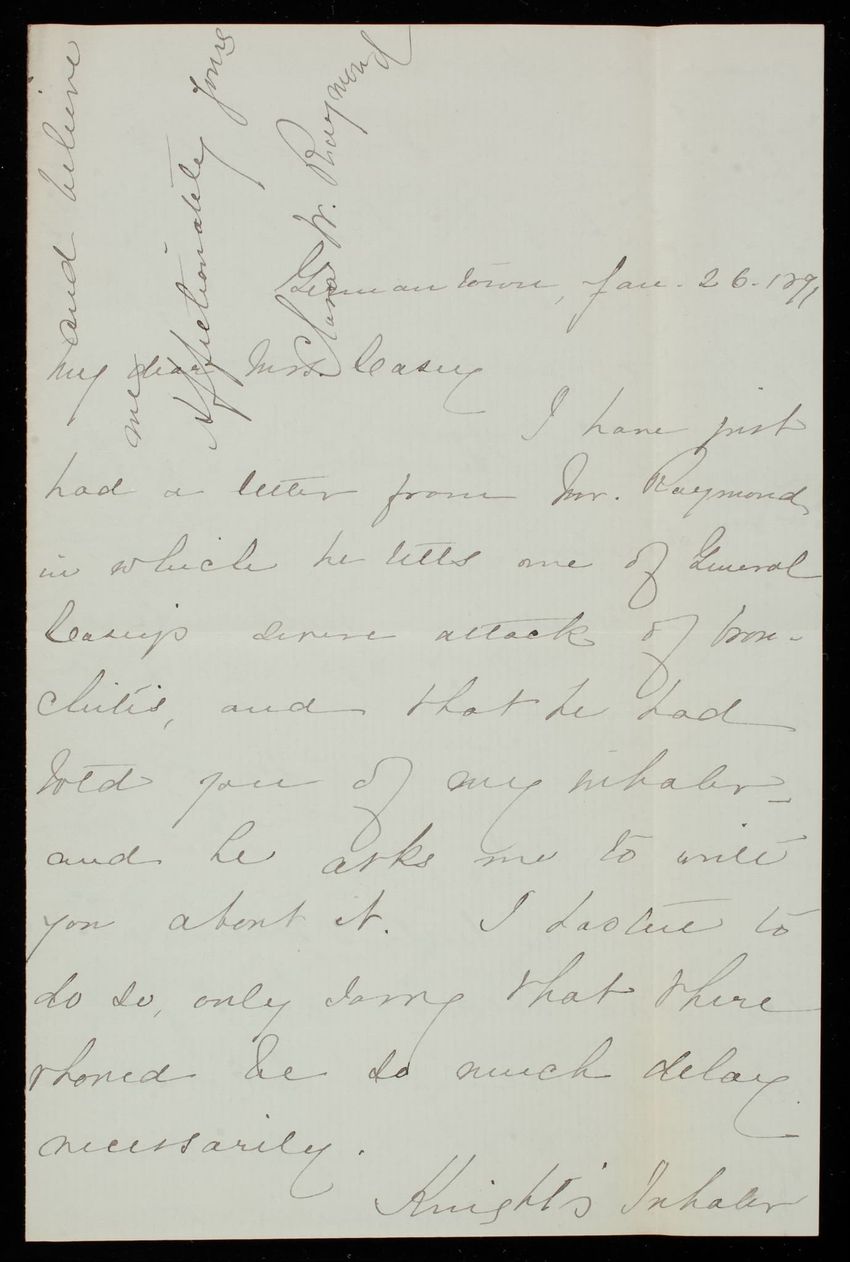 Germantown, Jan. 26. 1891
My dear Mrs. Casey
I have just
had a letter from Mr. Raymond,
in which he tells me of General
Casey's severe attack of bron-
chitis, and that he had
told you of my inhaler -
and he asks me to write
you about it. I hasten to
do so, only sorry that there
should be so much delay
necessarily.
Knight's Inhaler
and believe
me
Affectionately yours
Clara W. Raymond